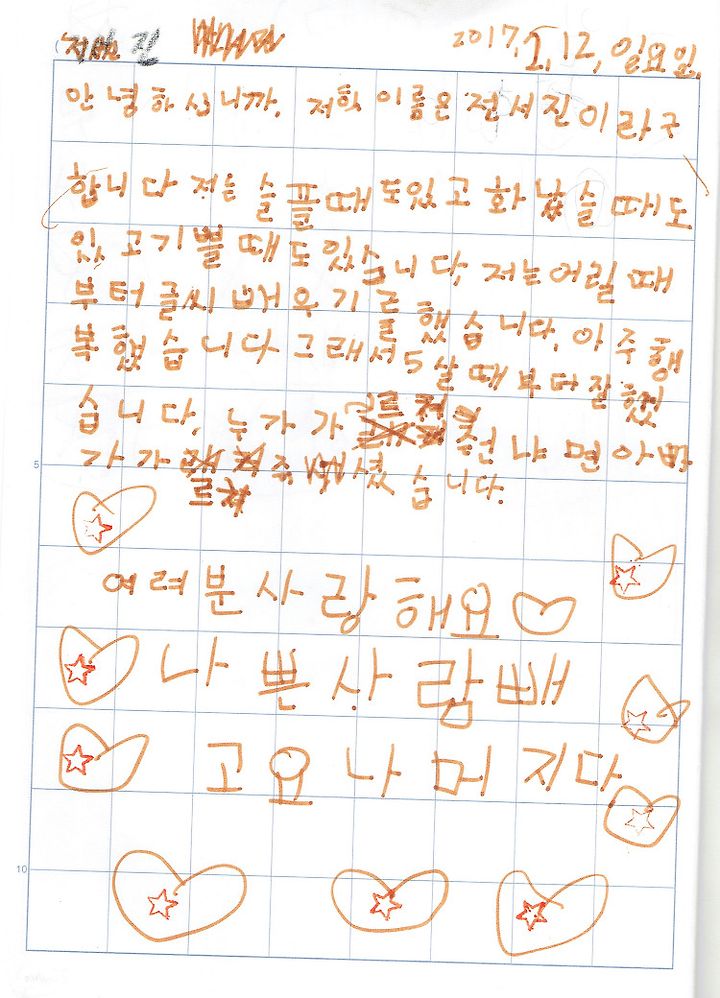 진 2017, 1, 12, 일요일,
안녕하십니까, 저희 이름은 전서진이라구
합니다 저는 슬플때도있고 화났슬때도
있고 기쁠때도있습니다, 저는어릴때
부터글씨 배우기를했습니다, 아주행
복했습니다 그래서 5살때부터잘했
습니다, 누가가르쳐 줜냐면아빠
가가르쳐주셨습니다.
여려분사랑해요
나쁜사람빼
고요나머지다
5
10